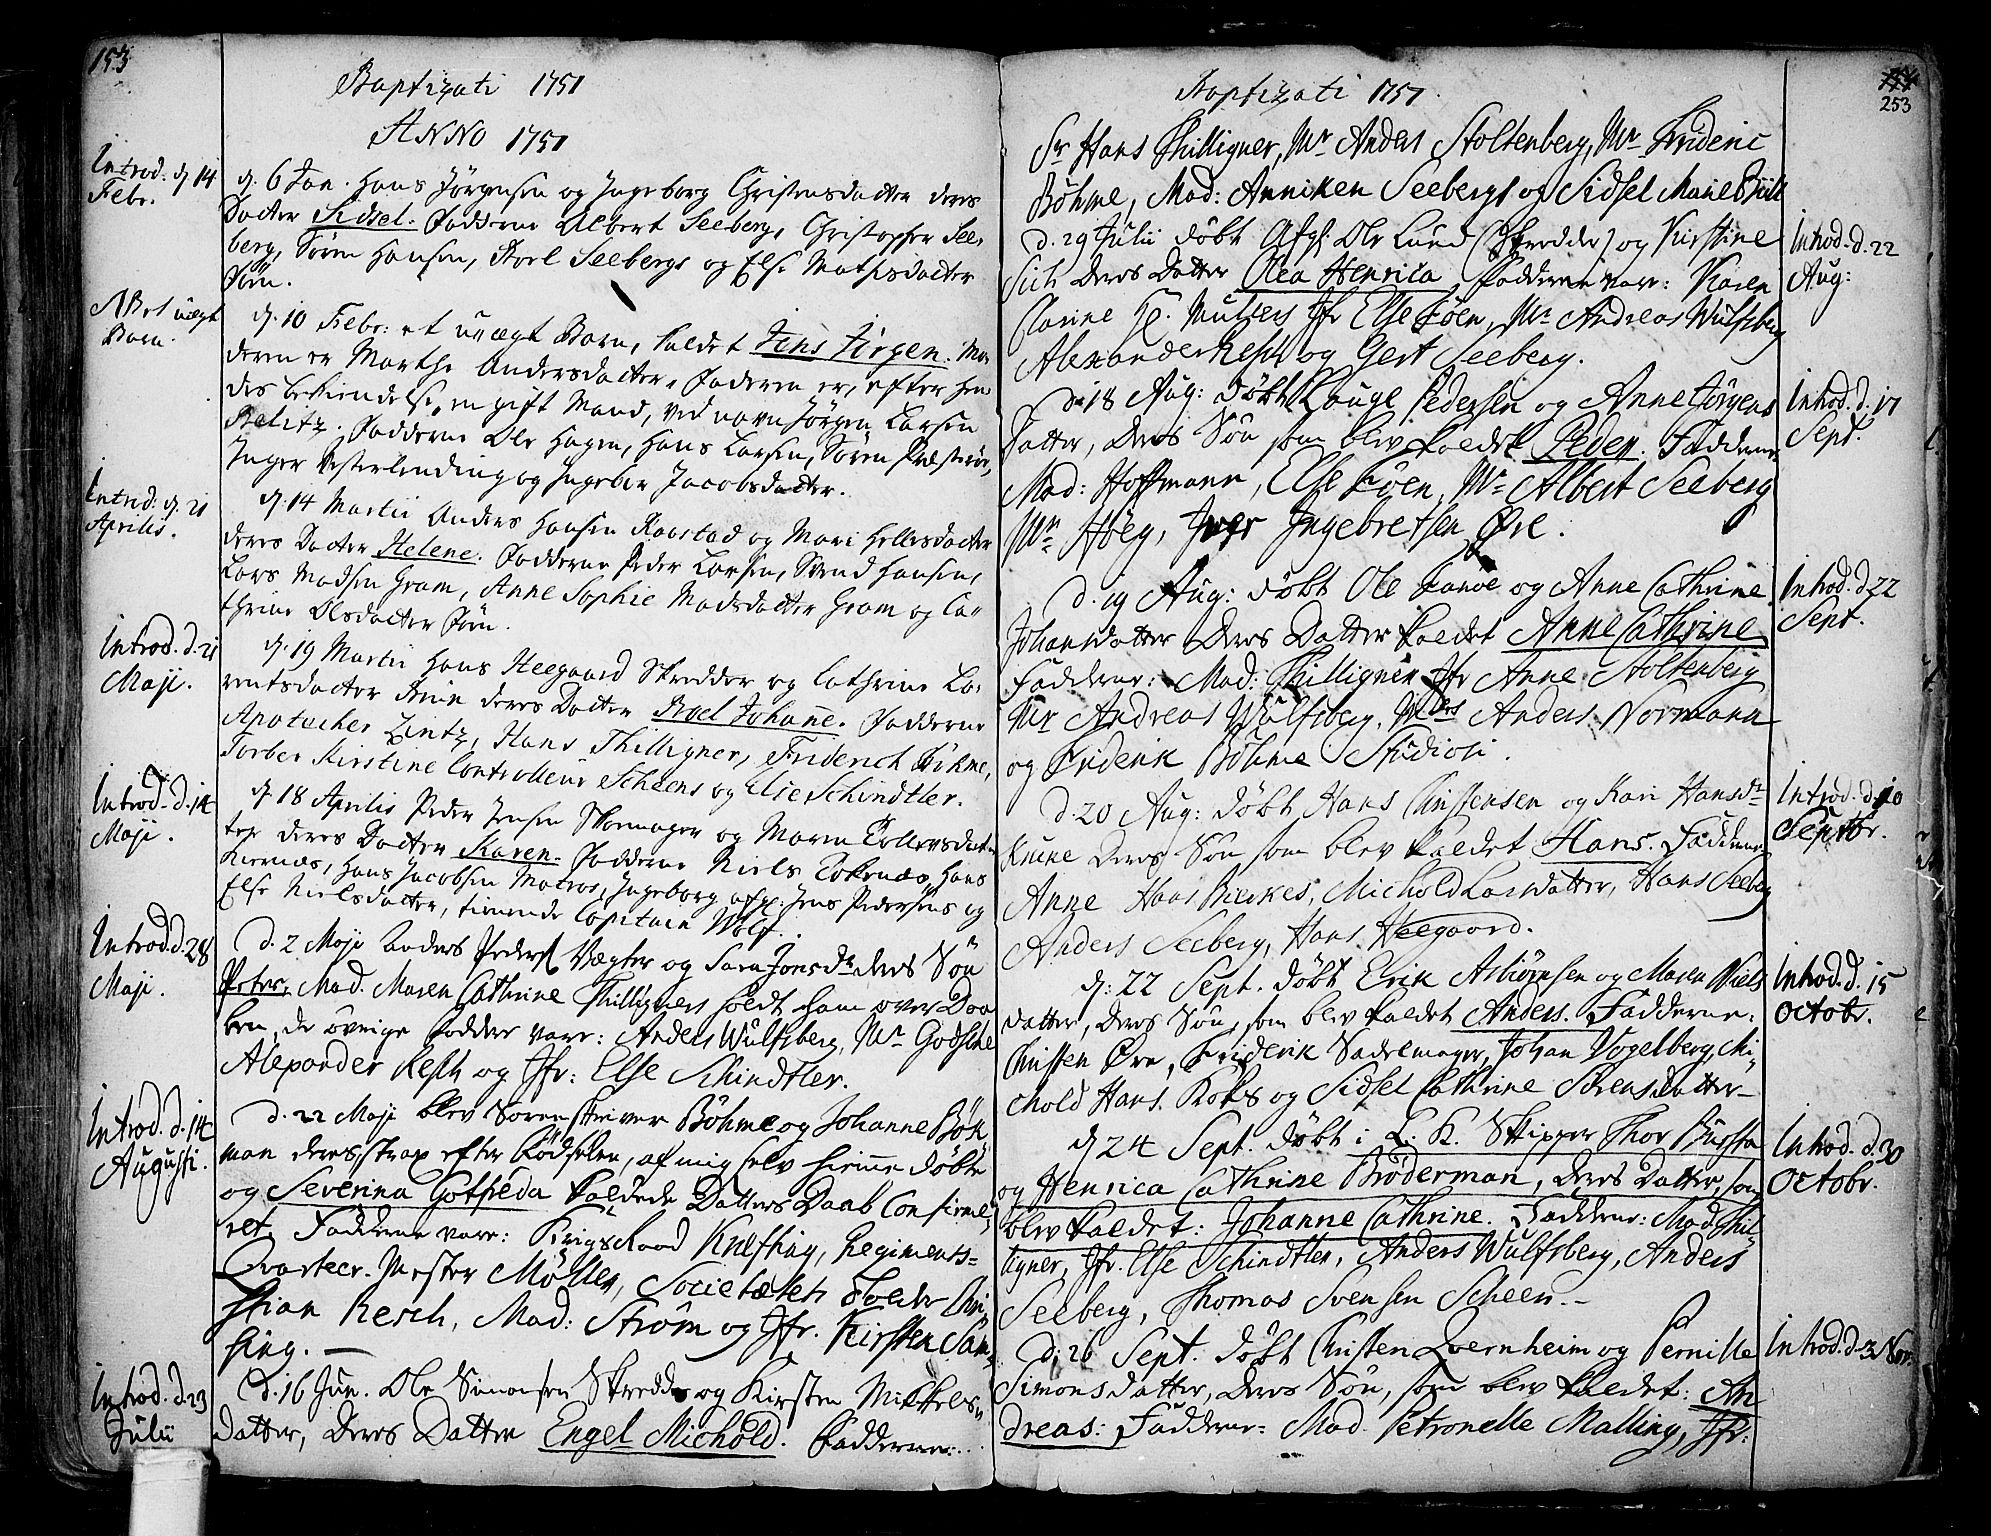 153
Baptizati 1751
ANNO 1751
Introd. d. 14
Febr.
d. 6 Jan. Hans Jörgensen og Ingeborg Christensdatter deres
Datter Sidsel. Fadderne Albert Seeberg, Christopher See-
berg, Sören Hansen, Karl Seebergs og Else Mathisdatter
NB et uægt
Barn.
d. 10 Febr: et uægt Barn, kaldet Jens Jörgen. Mo-
deren er Marthe Andersdatter. Faderen er, efter hen-
des bekiendelse, en gift Mand, ved navn Jörgen Larsen
Fadderne Ole Hagen, Hans Larsen, Sören
Inger og Ingebor Jacobsdatter.
Introd. d. 21
Aprilis.
d. 14 Martii Anders Hansen Raastad og Mari Hellesdatter
deres Datter Helene. Fadderne Peder Larsen, Svend Hansen,
Lars Madsen Gram, Anne Sophie Madsdatter Gram og Ca-
thrine Olsdatter
Introd. d. 21
Maji.
d. 19 Martii Hans Heegaard Skredder og Cathrine La-
rentsdatter deres Datter Johanne. Fadderne
Apotecher Lintz, Hans Thilligner, Friderich Böhme,
Torber Kirstine Controlleur Scheens og Else Schindtler.
Introd. d. 14
Maji.
d. 18 Aprilis Peder Jensen Skomager og Maren Tollevsdat-
ter deres Datter Karen. Fadderne Niels Hans
Hans Jacobsen Matros, Ingeborg afgl: Jens Pedersens og
Else Nielsdatter, tienende Capitain Wolf.
Introd. d. 28
Maji.
d. 2 Maji Anders Peders. Vægter og Sara Jonsdr. deres Sön
Peter, Mad. Maren Cathrine Thilligners holdt ham over Daa-
ben, de övrige Fadder vare: Anders Wulfsberg, Mr.
Alexander Resch og Jfr: Else Schindtler.
Introd. d. 14
Augusti.
d. 22 Maji blev Sorenskriver Böhme og Johanne
deres, strax efter Födselen, af mig selv hiemme döbte
og Severina Gotfreda kaldede Datters Daab Confirme-
ret. Fadderne vare: KrigsRaad Knefting, Regiments-
Qvarteer-Mester Möller, Societetets Chri-
stian Resch, Mad: Ström og Jfr. Kirsten Sam-
sing.—
Introd. d. 23
Julii
d. 16 Jun. Ole Simonsen Skredder og Kirsten Mikkels-
datter, Deres Datter Engel Michold. Fadderne:
253
Baptizati 1751.
Sr. Hans Thilligner, Mr. Anders Stoltenberg, Mr. Frideric
Böhme, Mad: Anniken Seebergs og Sidsel Marie
Introd. d. 22
Aug:
d. 29 Julii döbt Afgl. Ole Lund (Skredder) og Kirstine
deres Datter Olea Henrica Fadderne vare: Karen
Jfr Else Föen, Mr. Andreas Wulfsberg
Alexander Resch og Gert Seeberg.
Introd. d. 17
Sept.
d. 18 Aug: döbt Lauge Pedersen og Anne Jörgens
Datter, deres Sön som blev kaldet Peder. Faddere
Mad: Hoffmann, Else Föen, Mr. Albert Seeberg
Mr. Höeg, Iver Ingebretsen Öre.
Introd. d. 22
Sept.
d. 19 Aug: döbt Ole og Anne Cathrine
Johansdatter Deres Datter kaldet Anne Cathrine
Fadderne: Mad: Thilligner Jfr Anne Stoltenberg
Mr Andreas Wulfsberg, Anders Normann
og Friderik Böhme Studiosi.
Introd. d. 10
Septbr.
d. 20 Aug: döbt Hans Christensen og Kari Hansdr.
Deres Sön som blev kaldet Hans. Faddere
Anne Hans Michold Larsdatter, Hans Seeberg
Anders Seeberg, Hans Heegaard.
Introd. d. 15
Octobr.
d: 22 Sept. döbt Erik Asbiörnsen og Maren Niels
datter, deres Sön som blev kaldet Anders. Fadderne:
Christen Öre, Friderik Sadelmager, Johan Vogelberg, Mi-
chold Hans. og Sidsel Cathrine Sörensdatter—
Introd. d. 30
Octobr.
d. 24 Sept. döbt i L. K. Skipper Thor Bugta
og Henrica Cathrine Bröderman, deres Datter, som
blev kaldet: Johanne Cathrine. Fadderne: Mad. Thil-
ligner, Jfr. Else Schindtler, Anders Wulfsberg, Anders
Seeberg, Thomas Svensen Scheen.—
Introd. d. 3 Nov.
d. 26 Sept. döbt Christen Qvernheim og Pernille
Simonsdatter, deres Sön, som blev kaldet: An-
dreas: Fadderne: Mad. Petronelle Malling, Jfr: